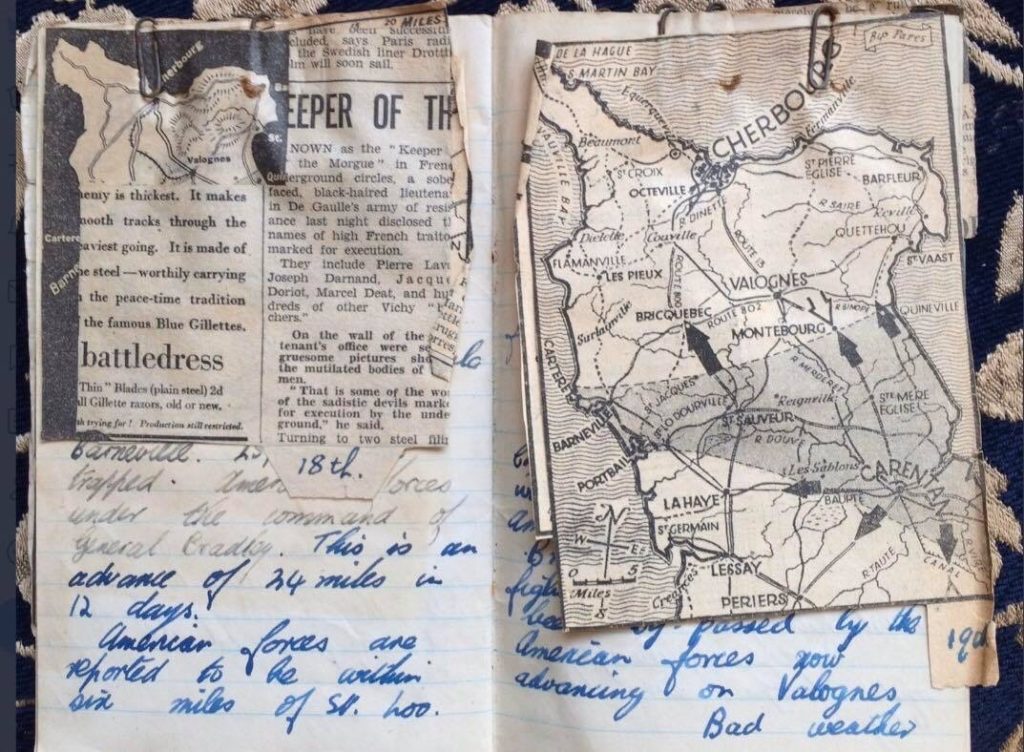 20 MILES
have been successfu
cluded, says Paris radi
the Swedish liner Drott
lm will soon sail.
erbourg
St.
Valognes
Quin
Cartere
Barne
EEPER OF TH
NOWN as the "Keeper
the Morgue" in Fren
erground circles, a sobe
faced, black-haired lieutena
in De Gaulle's army of resis
ance last night disclosed t
names of high French traito
marked for execution.
They include Pierre Lava
Joseph Darnand, Jacque
Doriot, Marcel Deat, and hu
dreds of other Vichy "
chers."
On the wall of the
tenant's office were se
gruesome pictures sho
the mutilated bodies of
men.
"That is some of the wo
of the sadistic devils mark
for execution by the unde
ground," he said.
Turning to two steel filin
nemy is thickest. It makes
mooth tracks through the
aviest going. It is made of
e steel—worthily carrying
the peace-time tradition
the famous Blue Gillettes.
battledress
Thin" Blades (plain steel) 2d
ll Gillette razors, old or new.
th trying for! Production still restricted.
18th.
Barneville.
trapped. Amer forces
under the command of
General Bradley. This is an
advance of 24 miles in
12 days.
American forces are
reported to be within
six miles of St. Loo.
DE LA HAGUE
S MARTIN BAY
VAUVILLE BAY
Big Fares
CHERBOURG
Equerqueville
Fermanville
Beaumont
St CROIX
OCTEVILLE
St PIERRE EGLISE
BARFLEUR
R. DINETTE
R. SAIRE
Reville
QUETTEHOU
St VAAST
Dielette
Couville
FLAMANVILLE
LES PIEUX
ROUTE 13
ROUTE 800
VALOGNES
R. SINOPE
QUINEVILLE
BRICQUEBEC
ROUTE 802
MONTEBOURG
Surtainville
R. MERDERET
CARTERET
St JACQUES
Reigneville
STE MERE EGLISE
BARNEVILLE
St SAUVEUR
R. DOUVE
PORTBAIL
Les Sablons
CARENTAN
LA HAYE
BAUPTE
St GERMAIN
N
W E
S
0 5
Miles
LESSAY
R. TAUTE
CANAL
PERIERS
by passed by the
American forces now
advancing on Valognes
Bad weather
19th